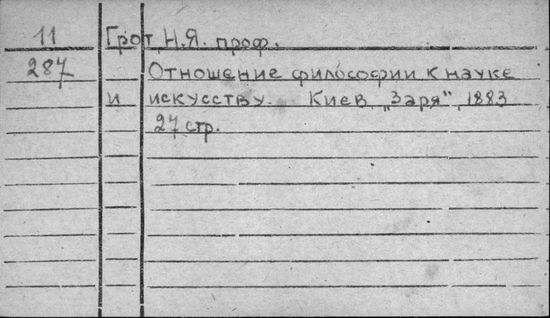 11 Грот, Н.Я. проф.
287 Отношение философии к науке
и искусству. Киев „Заря" 1883
27 стр.